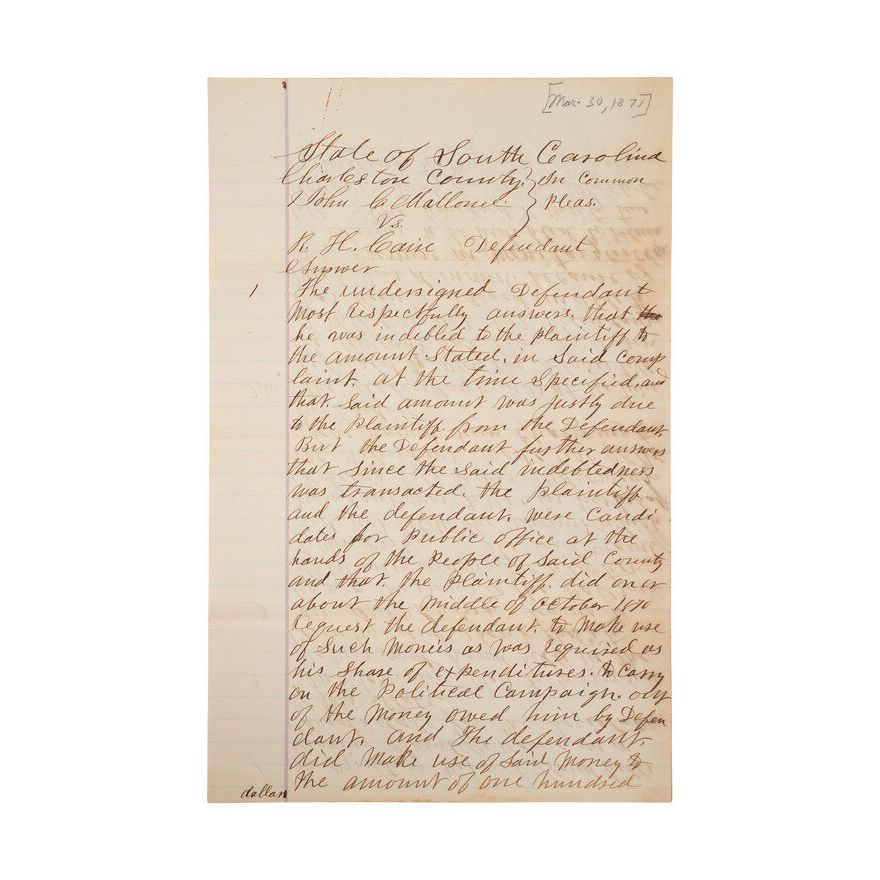 [Mar. 30, 1871]
State of South Carolina
Charleston County } In Common
John C Mallonee } Pleas.
Vs.
R. H. Cain Defendant
Answer
1 The undersigned Defendant
Most Respectfully answers, that the
he was indebted to the Plaintiff to
the amount Stated, in Said Comp
laint, at the time Specified, and
that, Said amount was justly due
to the Plaintiff from the Defendant,
But the Defendant further answers
that Since the Said indebtedness
was transacted, the plaintiff
and the defendant, were Candi
dates for Public office at the
hands of the People of Said County
and that, the Plaintiff did on or
about the Middle of October 1870
request the defendant, to Make use
of Such Monies as was required as
his Share of expenditures, to Carry
on the Political Campaign, out
of the Money owed him by Defen
dant, and The defendant,
did Make use of Said Money to
the amount of one hundred
dollars